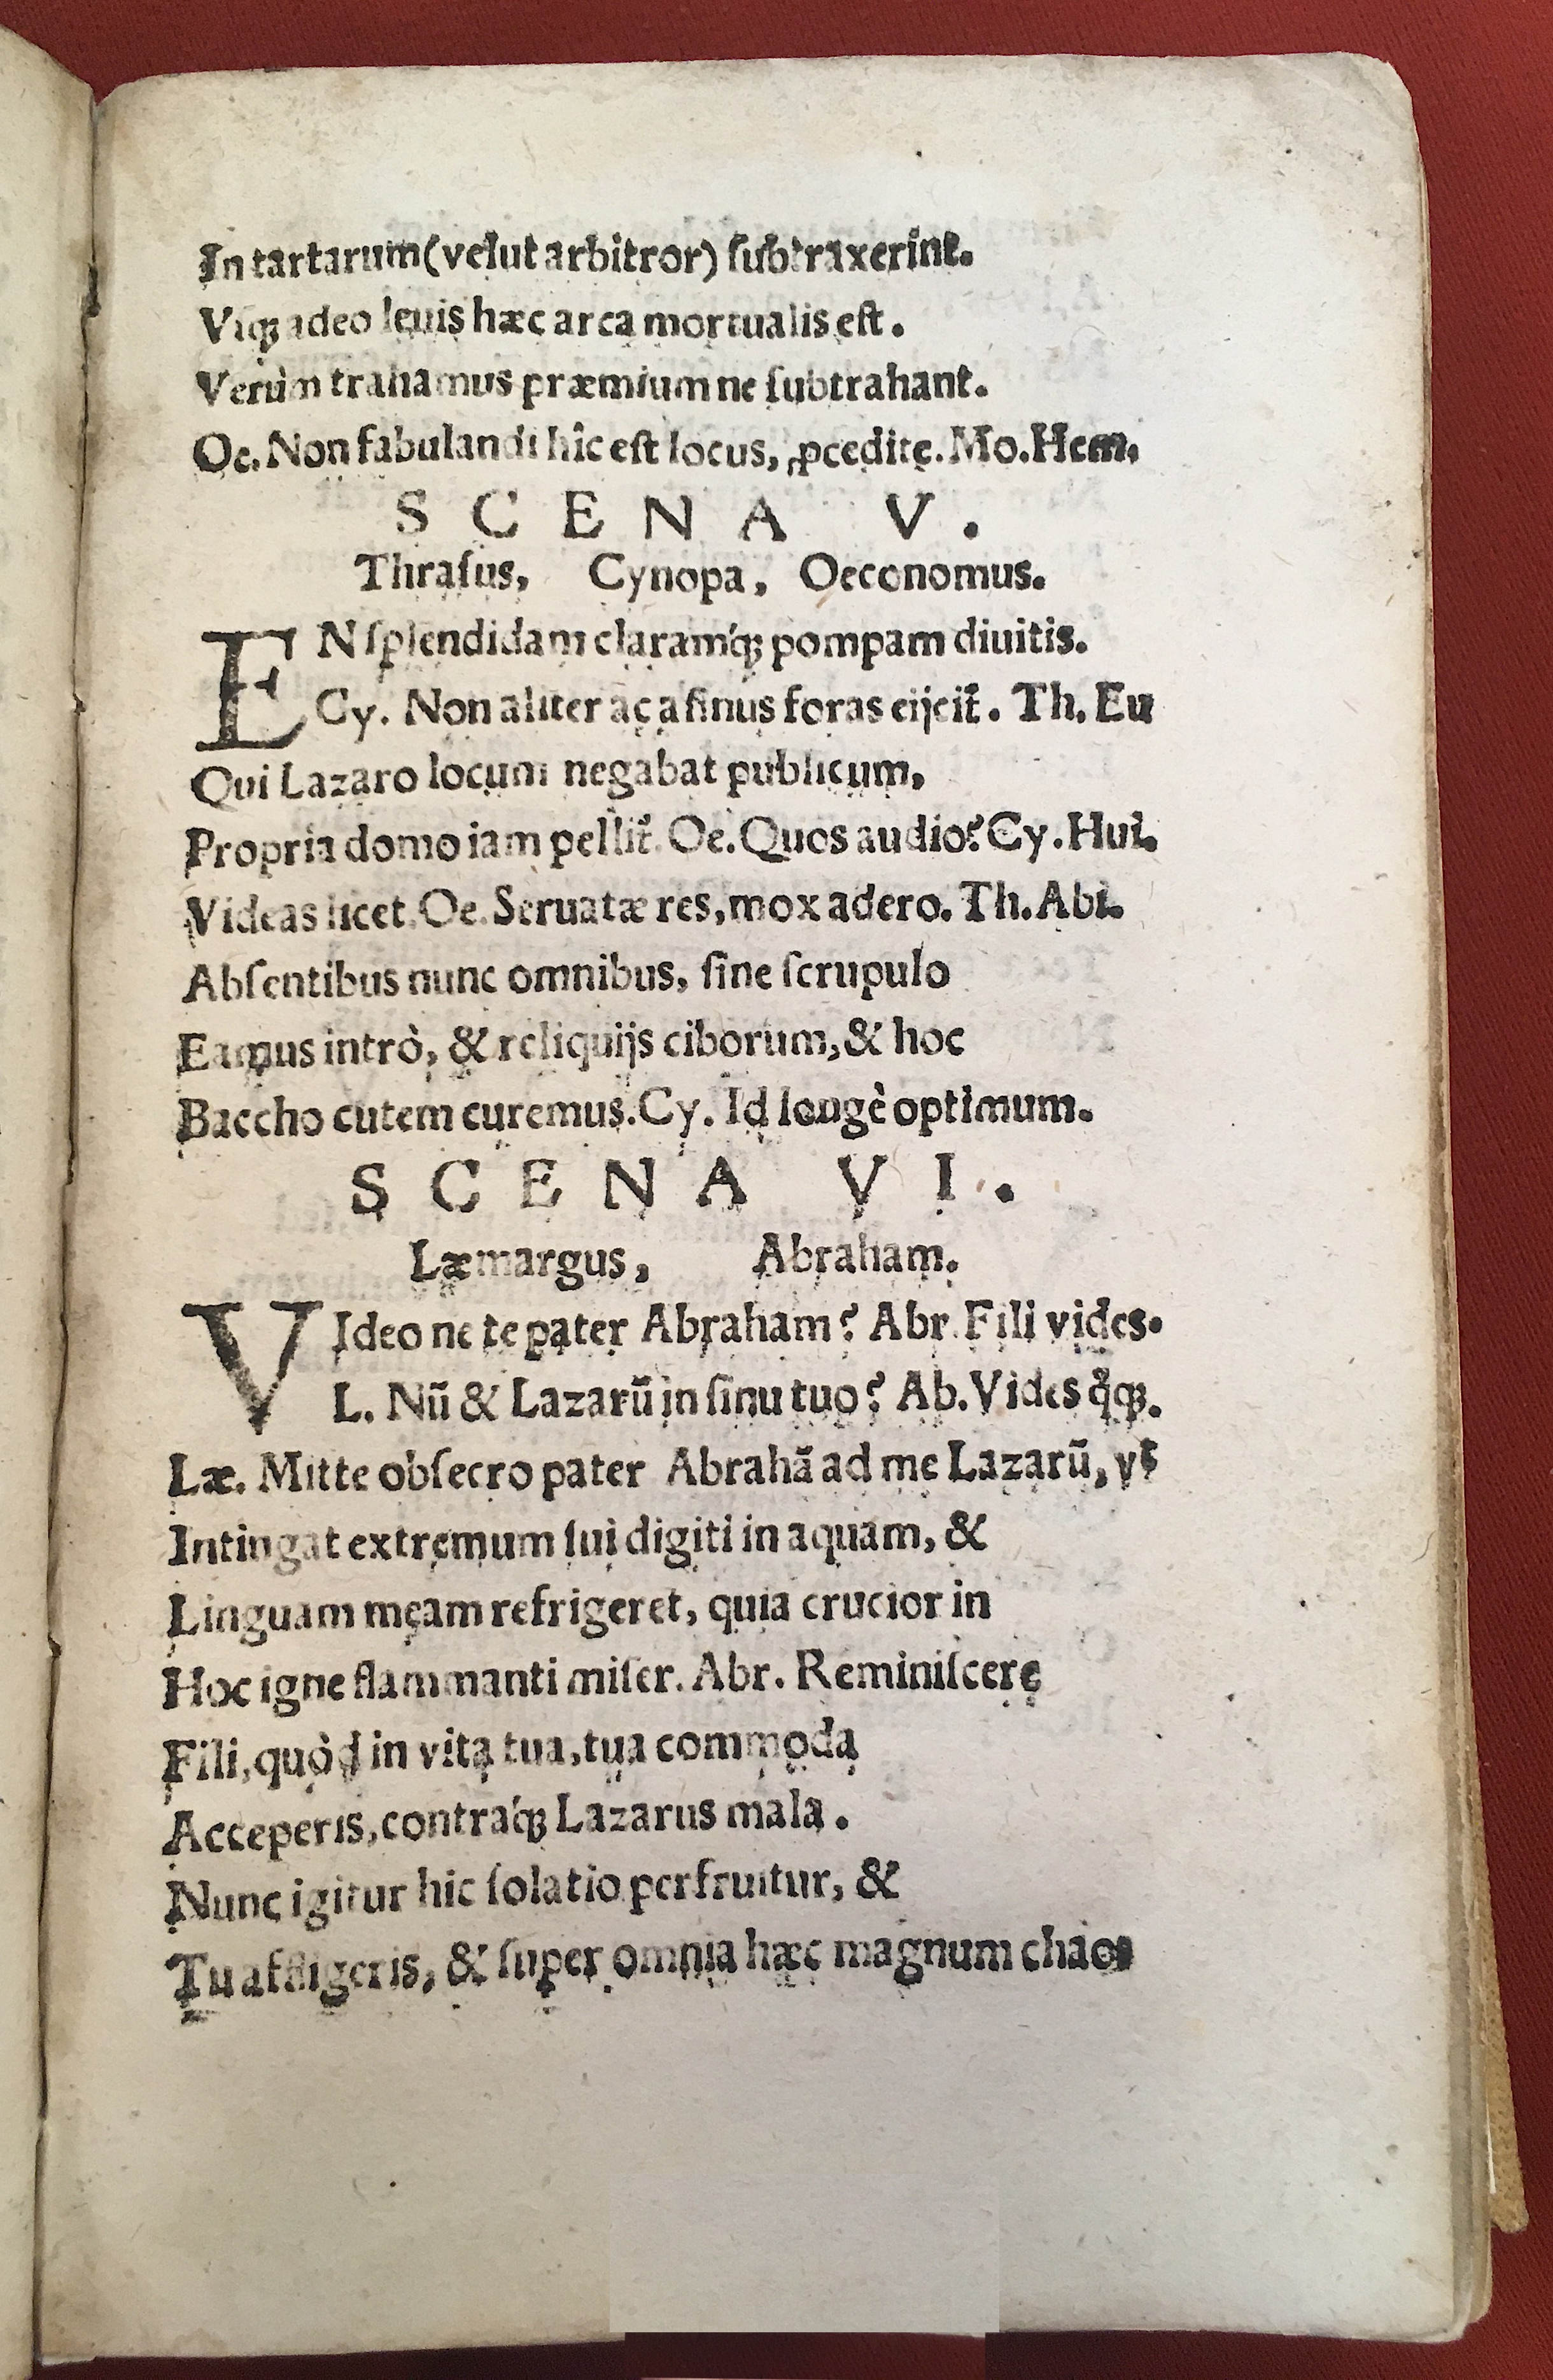 In tartarum (velut arbitror) ſubtraxerint.
Vſq; adeo leuis hæc arca mortualis eſt.
Verùm trahamus præmium ne ſubtrahant.
Oe. Non fabulandi hîc eſt locus, ꝓcedite. Mo. Hem.
SCENA V.
Thraſus, Cynopa, Oeconomus.
EN ſplendidam claramq́; pompam diuitis.
Cy. Non aliter ac aſinus foras eijcit᷑. Th. Eu
Qui Lazaro locum negabat publicum,
Propria domo iam pellit᷑. Oe. Quos audio? Cy. Hui.
Videas licet. Oe. Seruatæ res, mox adero. Th. Abi.
Abſentibus nunc omnibus, ſine ſcrupulo
Eamus intrò, & reliquijs ciborum, & hoc
Baccho cutem curemus. Cy. Id longè optimum.
SCENA VI.
Læmargus, Abraham.
VIdeo ne te pater Abraham? Abr. Fili vides.
L. Nū & Lazarū in ſinu tuo? Ab. Vides q̊q;.
Læ. Mitte obſecro pater Abrahā ad me Lazarū, vt
Intingat extremum ſui digiti in aquam, &
Linguam meam refrigeret, quia crucior in
Hoc igne flammanti miſer. Abr. Reminiſcere
Fili, quòd in vita tua, tua commoda
Acceperis, contraq́; Lazarus mala.
Nunc igitur hic ſolatio perfruitur, &
Tu affligeris, & ſuper omnia hæc magnum chaos